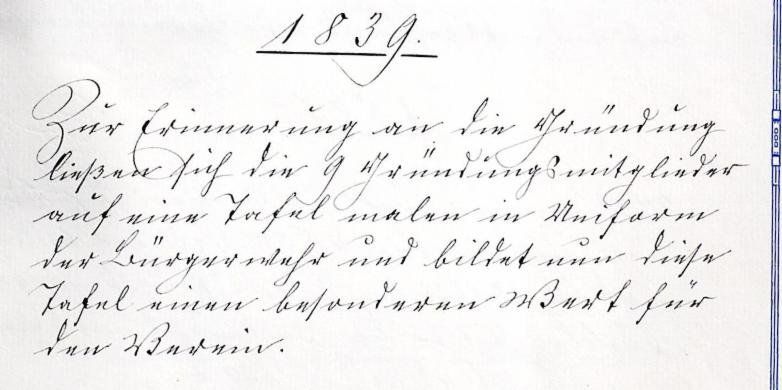 1839.
Zur Erinnerung an die Gründung
ließen sich die 9 Gründungsmitglieder
auf eine Tafel malen in Uniform
der Bürgerwehr und bildet nun diese
Tafel einen besonderen Wert für
den Verein.